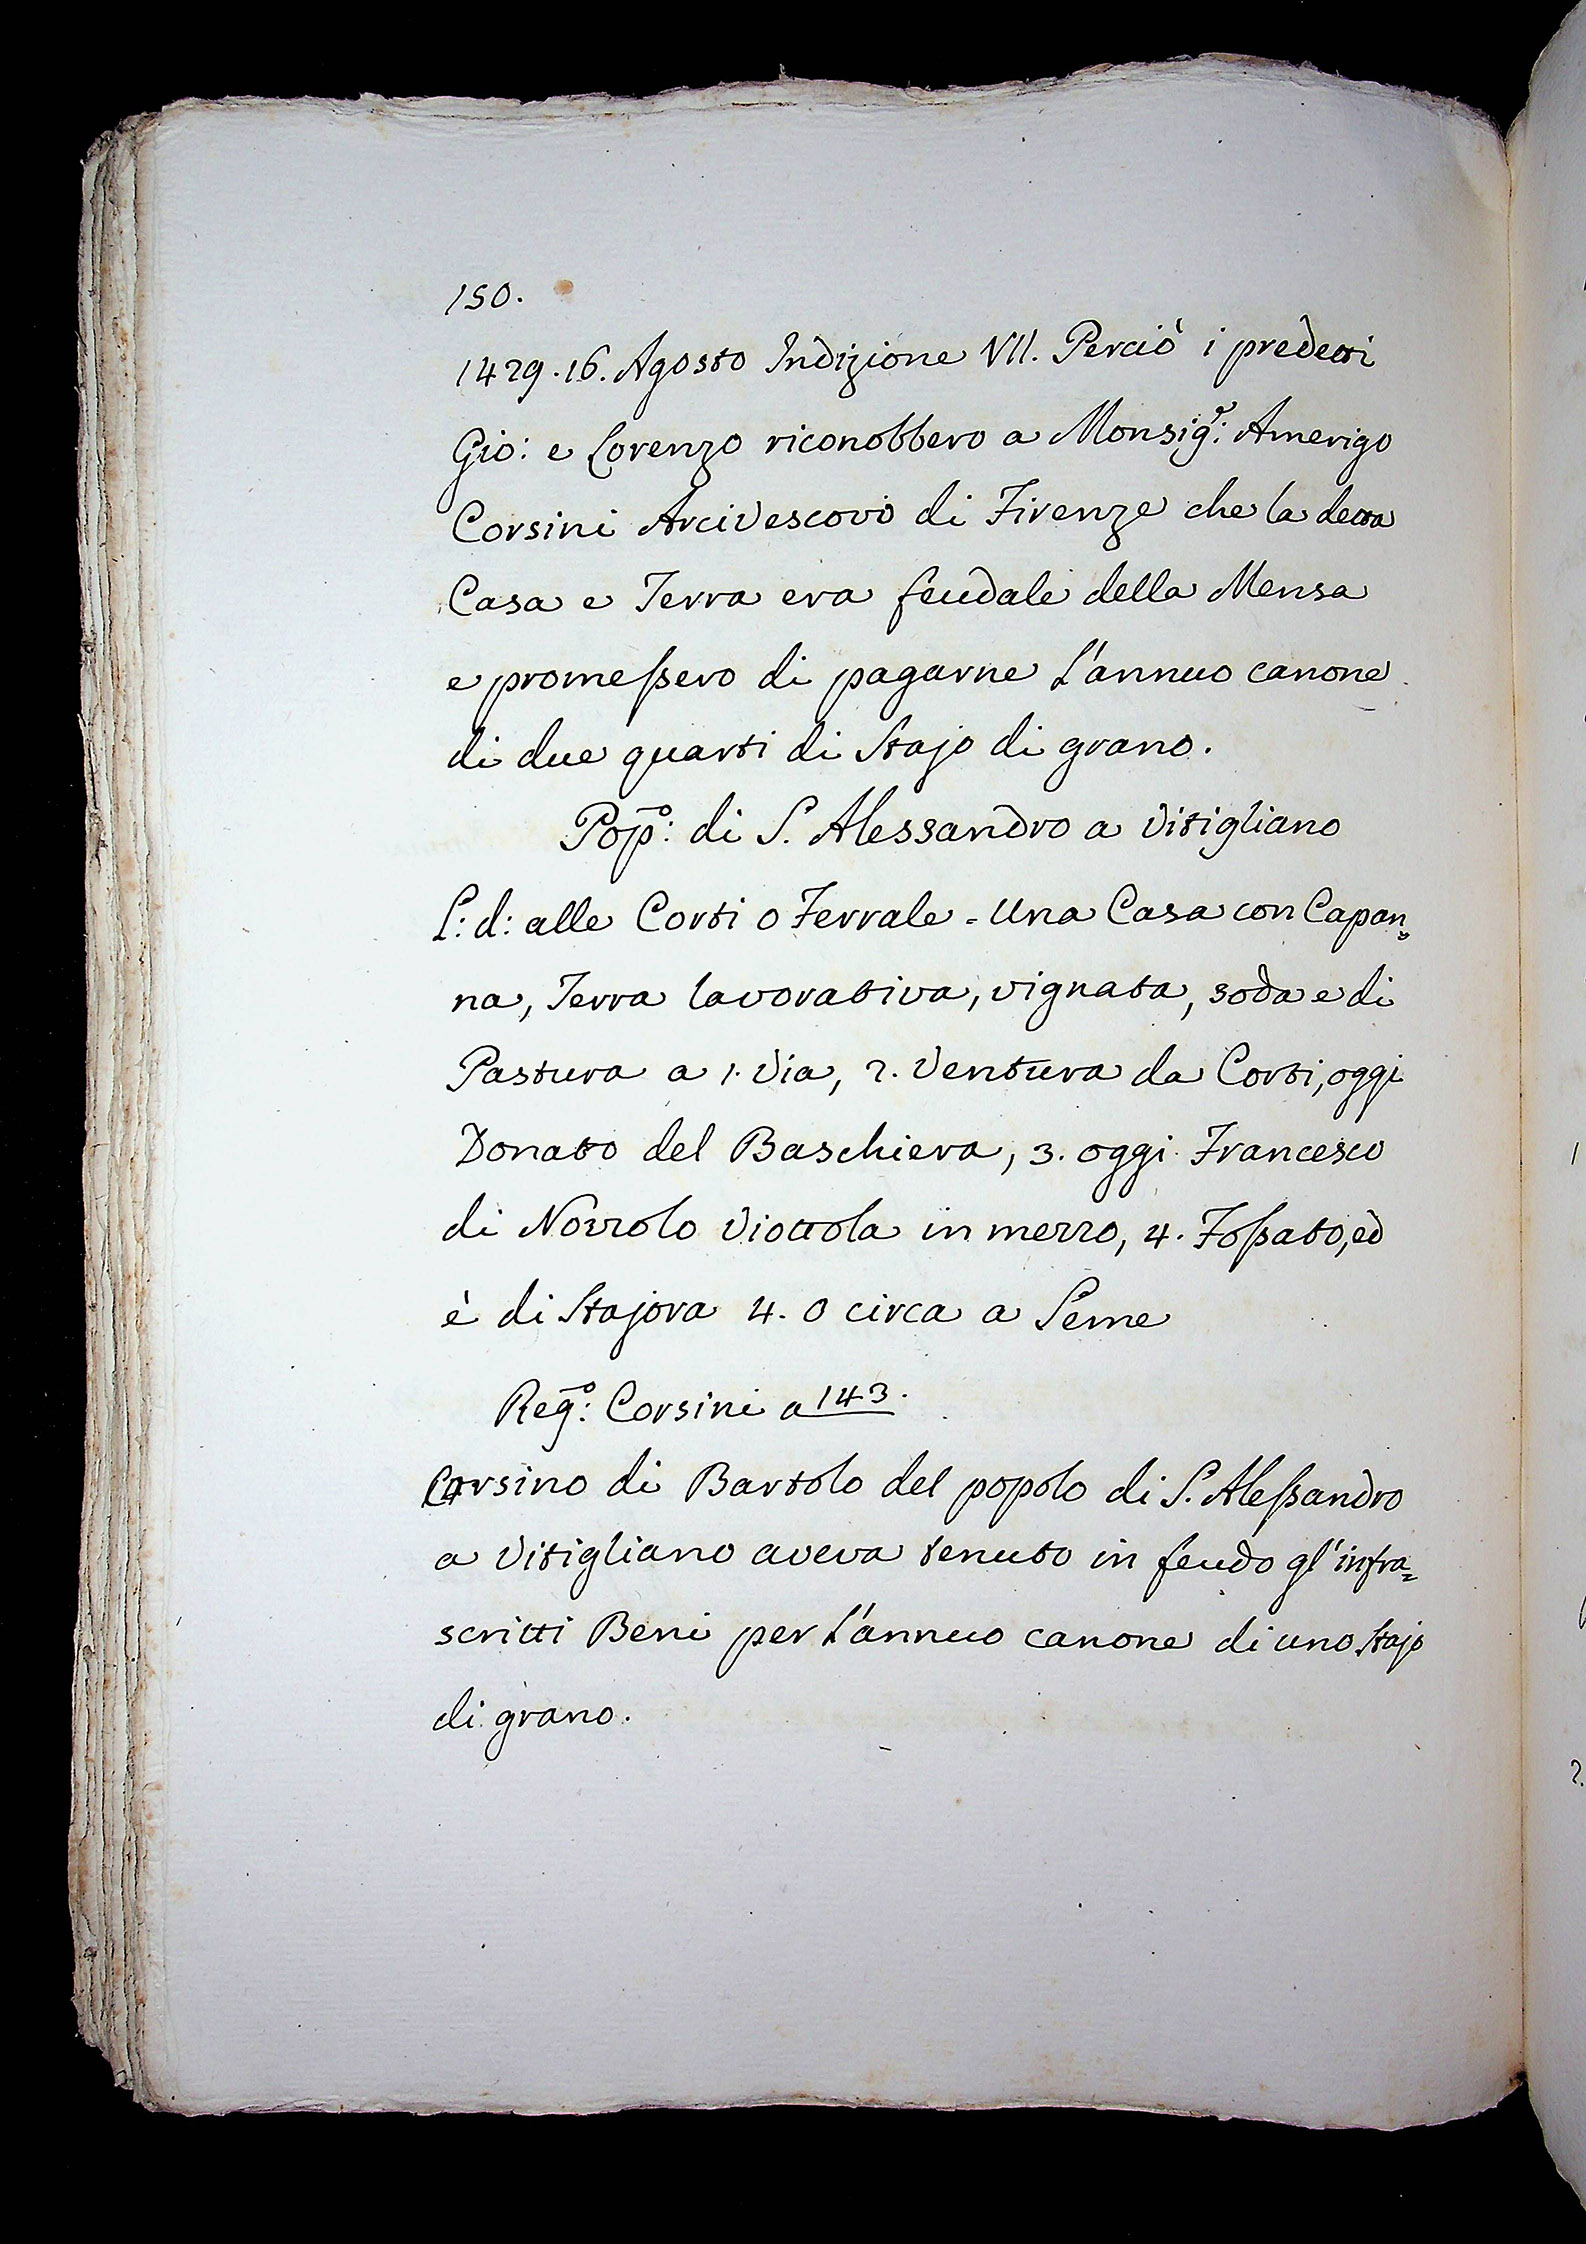 150.
1429. 16. Agosto Indizione VII. Perciò i predetti
Gio: e Lorenzo riconobbero a Monsig.r: Amerigo
Corsini Arcivescovo di Firenze che la detta
Casa e Terra era feudale della Mensa
e promeſsero di pagarne l'annuo canone
di due quarti di Stajo di grano.
Pop̄o: di S. Alessandro a Vitigliano
L: d: alle Corti o Ferrale = Una Casa con Capan=
na, Terra lavorativa, vignata, soda e di
Pastura a 1. Via, 2. Ventura da Corti, oggi
Donato del Baschiera, 3. oggi Francesco
di Nozzolo Viottola in mezzo, 4. Foſsato, ed
è di Stajora 4. o circa a Seme
Reḡo: Corsini a 143.
Corsino di Bartolo del popolo di S. Aleſsandro
a Vitigliano aveva tenuto in feudo gl'infra=
scritti Beni per l'annuo canone di uno Stajo
di grano.
1
2.